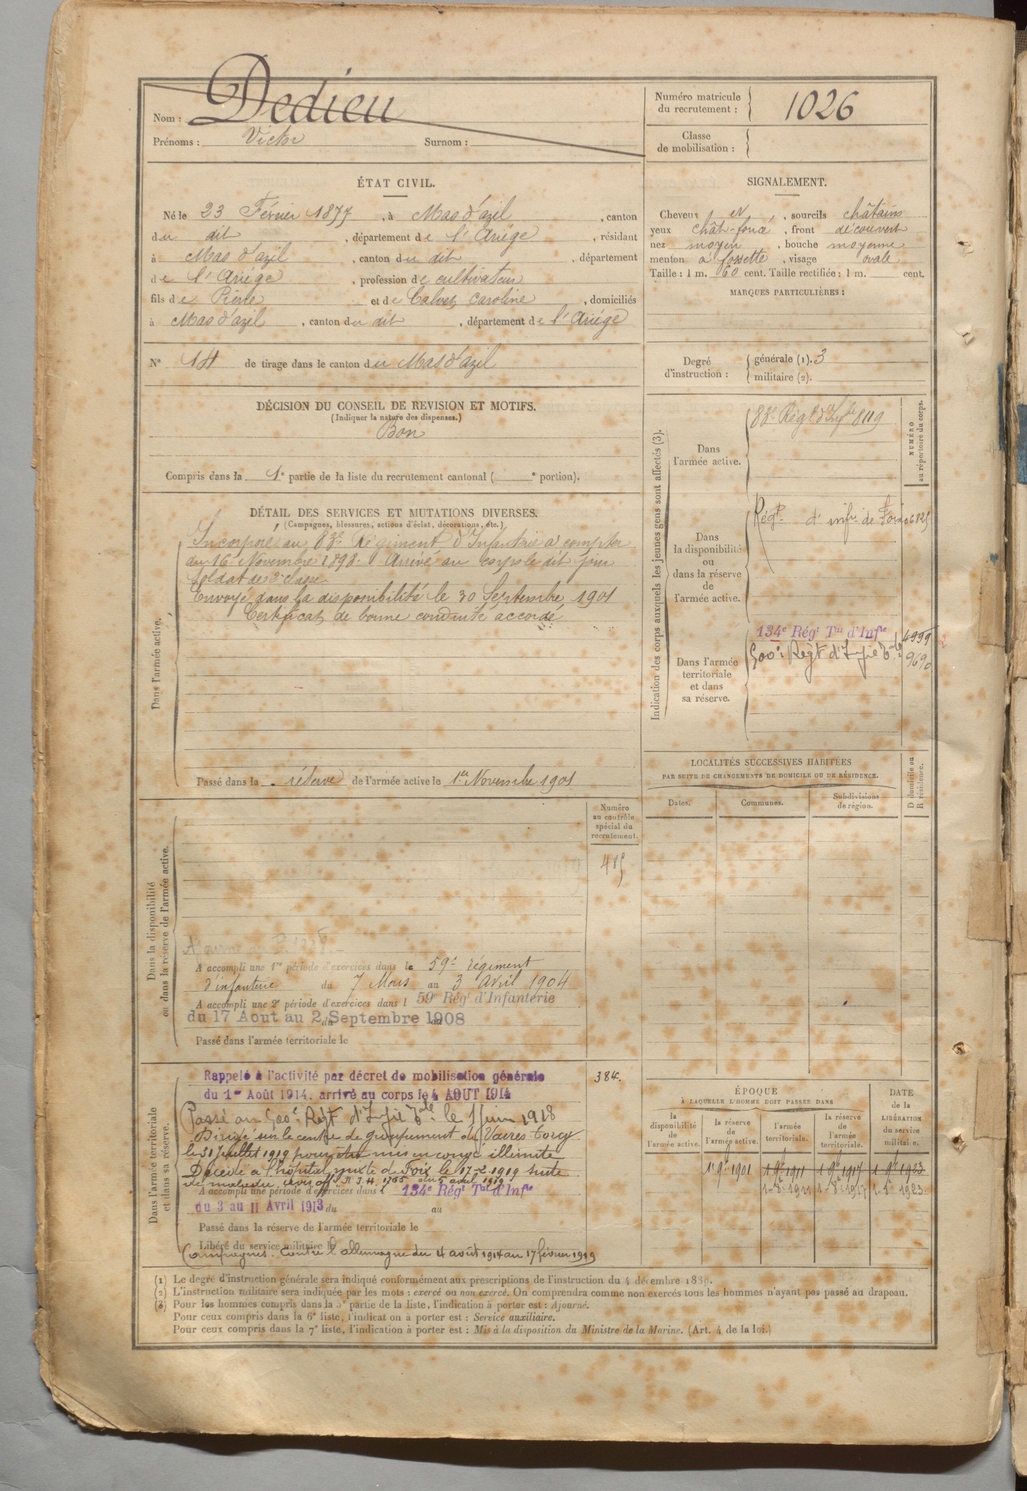 Nom : Dedieu
Prénoms : Victor Surnom :
Numéro matricule du recrutement : 1026
Classe de mobilisation :
ÉTAT CIVIL.
Né le 23 Février 1877, à Mas d'azil, canton
du dit, département de l'Ariège, résidant
à Mas d'azil, canton du dit, département
de l'Ariége, profession de cultivateur
fils de Pierre et de Calvet Caroline, domiciliés
à Mas d'azil, canton du dit, département de l'Ariége
N° 14 de tirage dans le canton du Mas d'azil
SIGNALEMENT.
Cheveux et, sourcils châtains
yeux chât-foncé, front découvert
nez moyen, bouche moyenne
menton à fossette, visage ovale
Taille : 1 m. 60 cent. Taille rectifiée : 1 m. cent.
MARQUES PARTICULIÈRES :
Degré d'instruction : générale (1). 3
militaire (2).
DÉCISION DU CONSEIL DE REVISION ET MOTIFS.
(Indiquer la nature des dispenses.)
Bon
Compris dans la 1e partie de la liste du recrutement cantonal ( e portion).
DÉTAIL DES SERVICES ET MUTATIONS DIVERSES.
(Campagnes, blessures, actions d'éclat, décorations, etc.)
Dans l'armée active.
Incorporé au 83e Régiment d'Infanterie à compter
du 16 Novembre 1898. Arrivé au corps le dit jour
Soldat de 2e classe
Envoyé dans la disponibilité le 30 Septembre 1901
Certificat de bonne conduite accordé
Passé dans la réserve de l'armée active le 1er Novembre 1901
Indication des corps auxquels les jeunes gens sont affectés (3).
NUMÉRO au répertoire du corps.
Dans l'armée active.
83e Régt d'Infie 8119
Dans la disponibilité ou dans la réserve de l'armée active.
Régt d'infie de Foix
Dans l'armée territoriale et dans sa réserve.
134e Régt Tal d'Infie 4999
500e Régt d'Infie Tale 9690
LOCALITÉS SUCCESSIVES HABITÉES
PAR SUITE DE CHANGEMENTS DE DOMICILE OU DE RÉSIDENCE.
Dates. Communes. Subdivisions de région. D domicile ou R résidence.
Dans la disponibilité ou dans la réserve de l'armée active.
Numéro au contrôle spécial du recrutement.
415
A accompli une 1re période d'exercices dans le 59e régiment
d'infanterie du 7 Mars au 3 avril 1904
A accompli une 2e période d'exercices dans l 59e Régt d'Infanterie
du 17 Aout au 2 Septembre 1908
Passé dans l'armée territoriale le
Dans l'armée territoriale et dans sa réserve.
384.
Rappelé à l'activité par décret de mobilisation générale
du 1er Août 1914. arrivé au corps le 4 AOUT 1914
Passé au 500e Régt d'Infie Tale le 1 Juin 1918
Dirigé sur le centre de groupement de Vaires Torcy
le 31 Juillet 1919 pour être mis en congé illimité
Décédé à l'hôpital mixte de Foix le 17-2-1919 suite
de maladie,
A accompli une période d'exercices dans l 134e Régt Tal d'Infie
du 3 au 11 Avril 1913 du au
Passé dans la réserve de l'armée territoriale le
Libéré du service militaire le
Campagnes. Contre l'allemagne du 4 août 1914 au 17 février 1919
ÉPOQUE
A LAQUELLE L'HOMME DOIT PASSER DANS
la disponibilité de l'armée active.
la réserve de l'armée active.
l'armée territoriale.
la réserve de l'armée territoriale.
DATE de la LIBÉRATION du service militaire.
1 9e 1901 1 9e 1911 1 9e 1917 1 9e 1923
(1) Le degré d'instruction générale sera indiqué conformément aux prescriptions de l'instruction du 4 décembre 1889.
(2) L'instruction militaire sera indiquée par les mots : exercé ou non exercé. On comprendra comme non exercés tous les hommes n'ayant pas passé au drapeau.
(3) Pour les hommes compris dans la 5e partie de la liste, l'indication à porter est : Ajourné.
Pour ceux compris dans la 6e liste, l'indication à porter est : Service auxiliaire.
Pour ceux compris dans la 7e liste, l'indication à porter est : Mis à la disposition du Ministre de la Marine. (Art. 4 de la loi.)